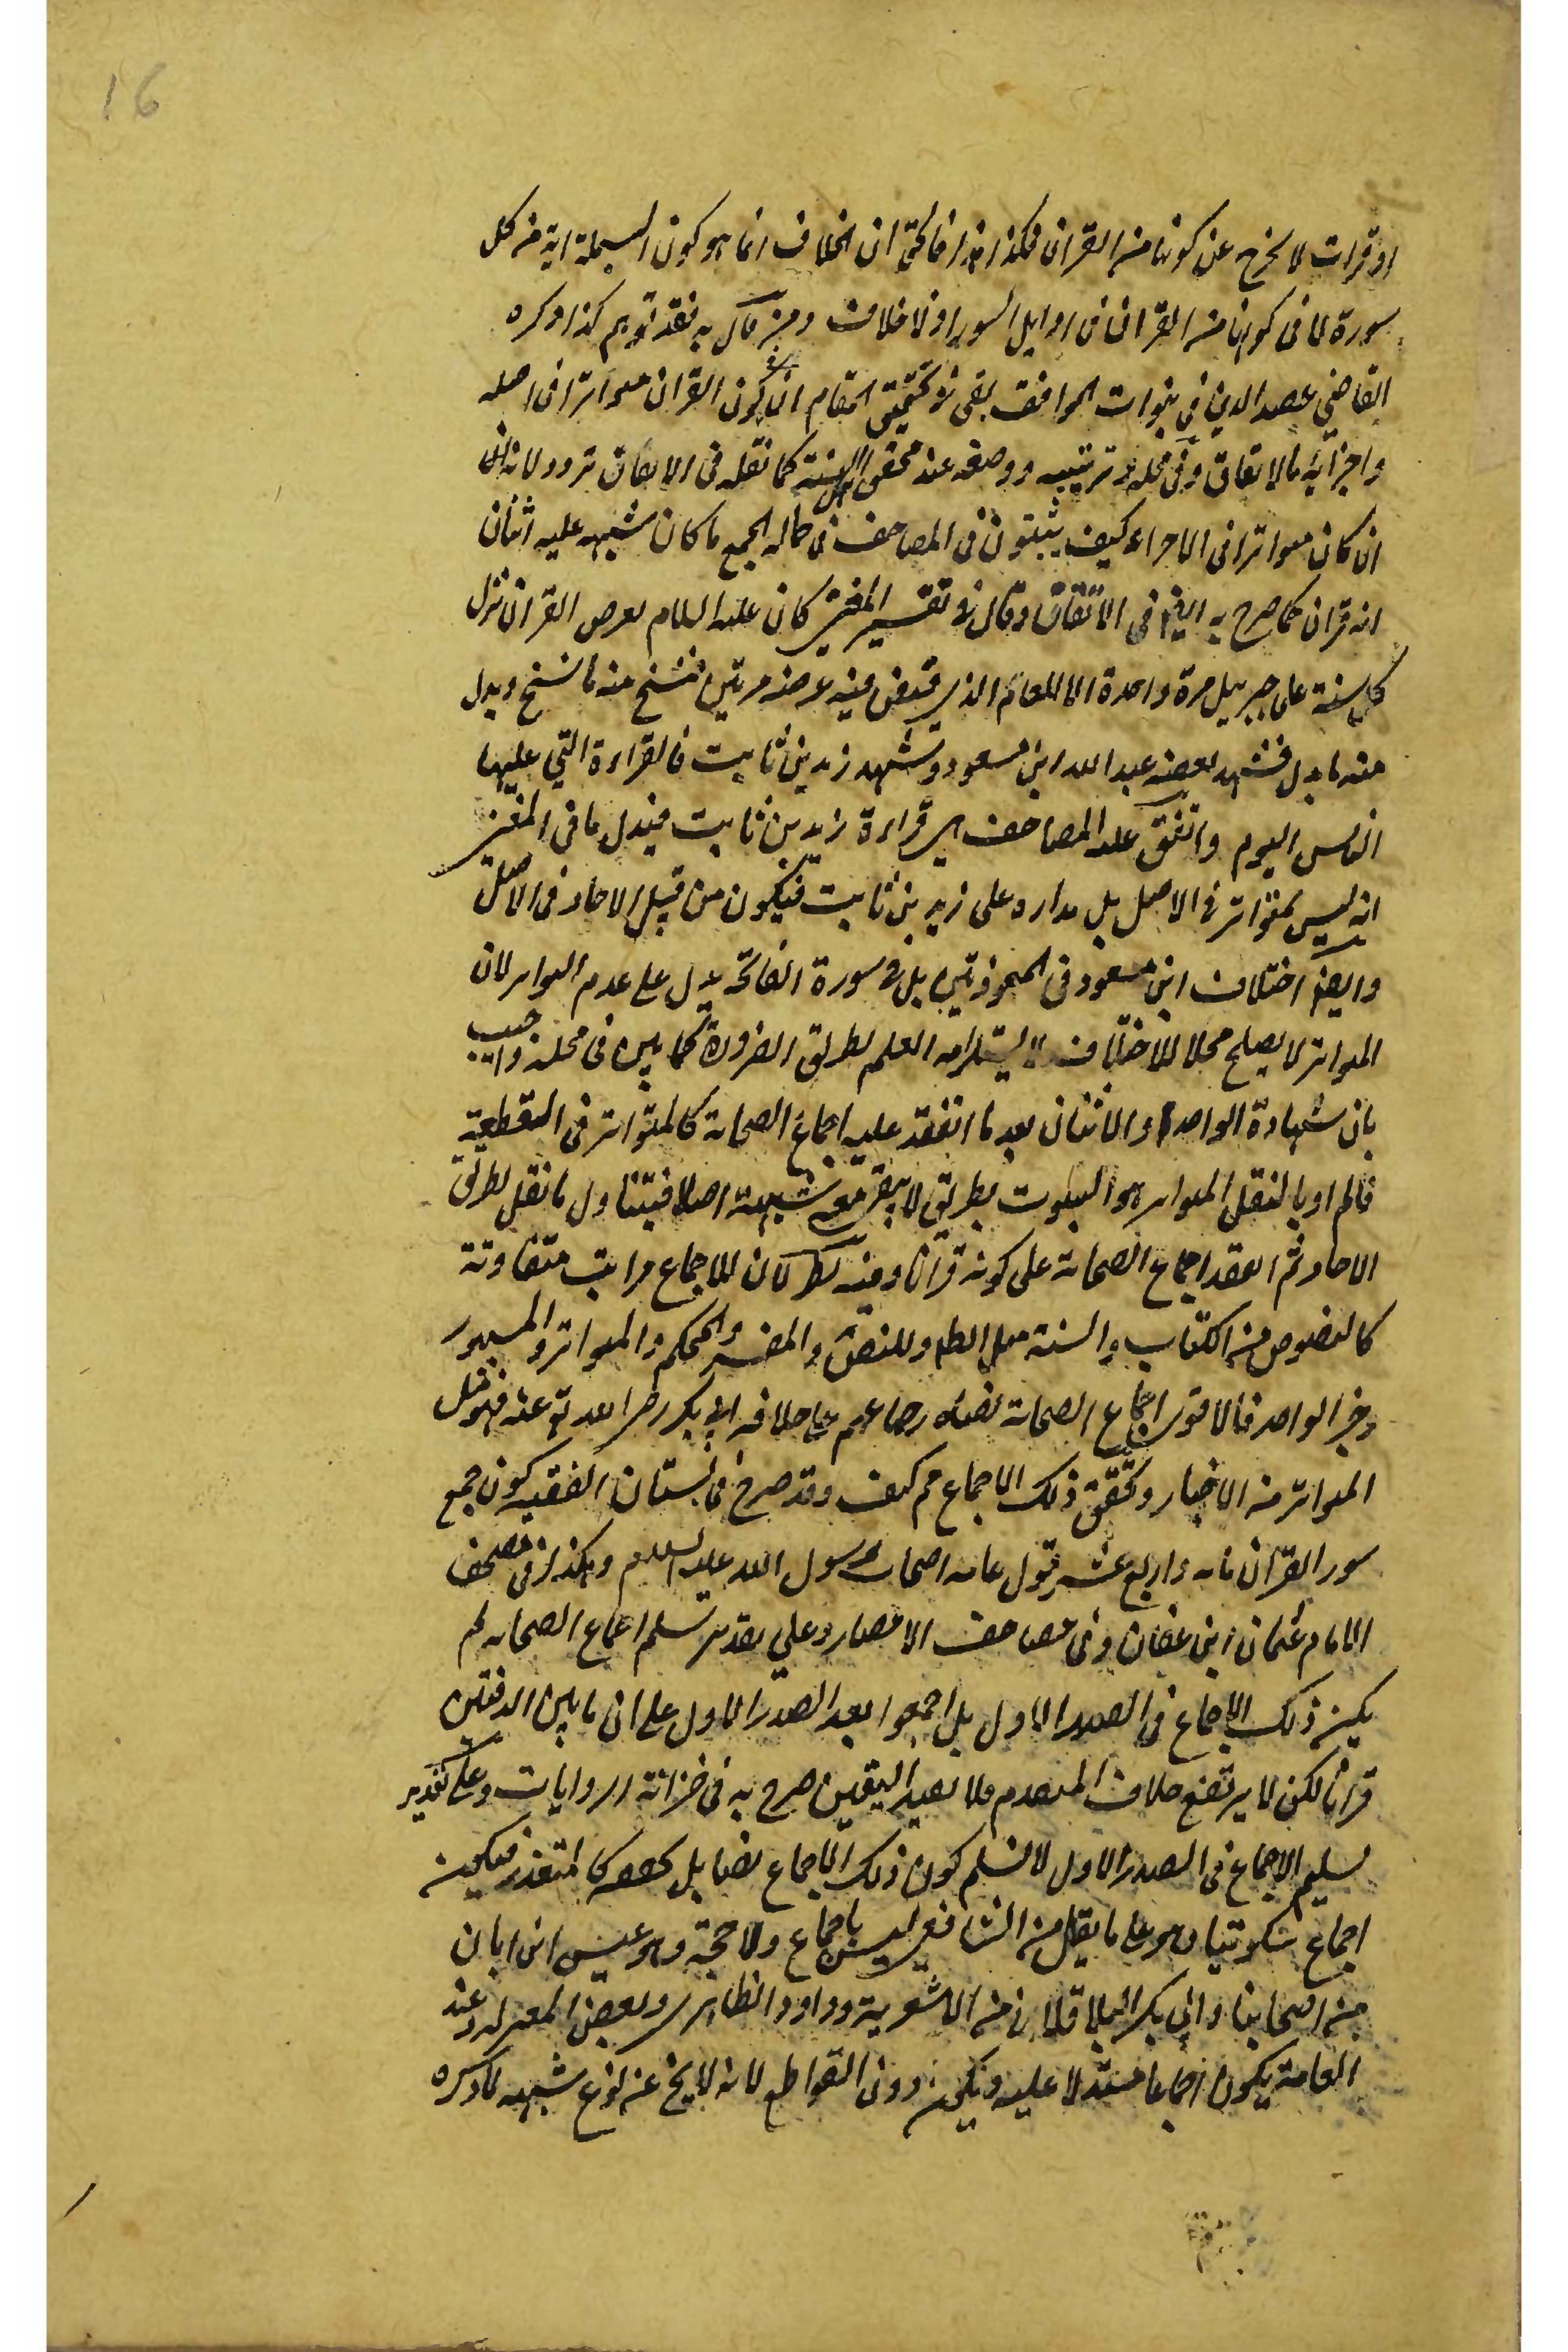 16
او قرات لا يخرج عن كونها من القران فكذا هذا فالحق ان الخلاف انما هو كون البسملة اية من كل
سورة لا فى كونها من القران فى اوايل السور اذ لا خلاف ومن قال به فقد توهم كذا ذكره
القاضي عضد الدين فى نبوات المواقف بقى فى تحقيق المقام ان فى كون القران متواترا فى اصله
واجزائه بالاتفاق وفى محله وترتيبه ووصفه عند محققى اهل السنة كما نقله فى الاتقان تردد لانه
ان كان متواترا فى الاجزاء كيف يثبتون فى المصاحف فى حالة الجمع ما كان شهد عليه اثنان
انه قران كما صرح به ايضا فى الاتقان وقال فى تفسير المغنى كان عليه السلام يعرض القران نزل
كل سنة على جبريل مرة واحدة الا العام الذى قبض فيه عرضه مرتين فنسخ منه ما نسخ وبدل
منه ما بدل فشهد بعضه عبد الله ابن مسعود وشهد زيد بن ثابت فالقراءة التي عليها
الناس اليوم واتفق عليه المصاحف هى قراءة زيد بن ثابت فيدل ما فى المغنى
انه ليس بمتواتر فى الاصل بل مداره على زيد بن ثابت فيكون من قبيل الاحاد فى الاصل
وايضا اختلاف ابن مسعود فى المعوذتين بل فى سورة الفاتحة يدل على عدم التواتر لان
المتواتر لا يصلح محلا للاختلاف لاستلزامه العلم بطريق الضرورة كما بين فى محله واجيب
بان شهادة الواحد والاثنان بعد ما انعقد عليه اجماع الصحابة كالمتواتر فى القطعية
فالمراد بالنقل المتواتر هو الثبوت بطريق لا يبقى معه شبهة اصلا فيتناول ما نقل بطريق
الاحاد ثم انعقد اجماع الصحابة على كونه قرانا وفيه نظر لان للاجماع مراتب متفاوتة
كالنصوص من الكتاب والسنة مثل الظاهر والنص والمفسر والمحكم والمتواتر والمشهور
وخبر الواحد فالاقوى اجماع الصحابة نصا كاجماعهم على خلافة ابى بكر رضى الله تع عنه فهو مثل
المتواتر من الاخبار وتحقق ذلك الاجماع مم كيف وقد صرح فى بستان الفقيه كون جمع
سور القران مائة واربع عشر قول عامة اصحاب رسول الله عليه السلام وهكذا فى مصحف
الامام عثمان ابن عفان وفى مصاحف الامصار وعلى تقدير تسليم اجماع الصحابة لم
يكن ذلك الاجماع فى الصدر الاول بل اجمعوا بعد الصدر الاول على ان ما بين الدفتين
قران لكن لا يرتفع خلاف المتقدم فلا يفيد اليقين صرح به فى خزانة الروايات وعلى تقدير
تسليم الاجماع فى الصدر الاول لا نسلم كون ذلك الاجماع نصا بل بعضه كالمتعذر فيكون
اجماع سكوتيا وهو على ما نقل من الشافعى ليس باجماع ولا حجة وهو عيسى ابن ابان
من اصحابنا وابى بكر الباقلانى من الاشعرية وداود الظاهرى وبعض المعتزلة وعند
العامة يكون اجماعا مستدلا عليه ويكون دون القواطع لانه لا يخ عن نوع شبهه كما ذكره